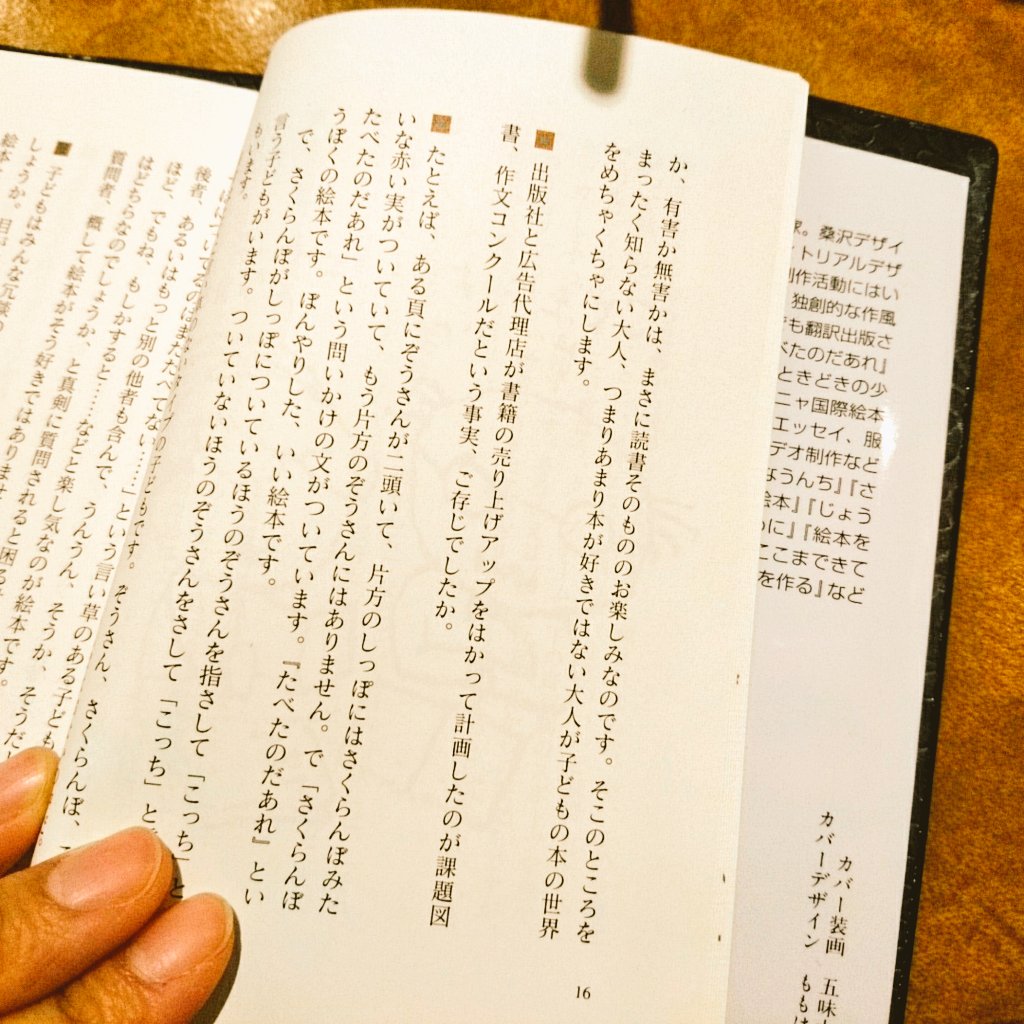 か、有害か無害かは、まさに読書そのもののお楽しみなのです。そこのところを
まったく知らない大人、つまりあまり本が好きではない大人が子どもの本の世界
をめちゃくちゃにします。
■出版社と広告代理店が書籍の売り上げアップをはかって計画したのが課題図
書、作文コンクールだという事実、ご存じでしたか。
■たとえば、ある頁にぞうさんが二頭いて、片方のしっぽにはさくらんぼみた
いな赤い実がついていて、もう片方のぞうさんにはありません。で「さくらんぼ
たべたのだあれ」という問いかけの文がついています。『たべたのだあれ』とい
うぼくの絵本です。ぼんやりした、いい絵本です。
で、さくらんぼがしっぽについているほうのぞうさんを指さして「こっち」と
言う子どもがいます。ついていないほうのぞうさんをさして「こっち」と
もいます。
16
についてるのはまだたべてない……」という言い草のある子ども
の子どもです。ぞうさん、さくらんぼ、
後者、あるいはもっと別の他者も含んで、うんうん、そうか、そうだ
ほど、でもね、もしかすると……などと楽し気なのが絵本です。
はどちらなのでしょうか、と真剣に質問されると困る
質問者、概して絵本がそう好きではありませ
■子どもはみんな冗談の
しょうか。目が
絵本
家。桑沢デザイ
トリアルデザ
制作活動にはい
独創的な作風
でも翻訳出版さ
べたのだあれ』
ときどきの少
ニャ国際絵本
エッセイ、服
デオ制作など
ょうんち』『さ
絵本』『じょう
に』『絵本を
ここまできて
を作る』など
カバー装画 五味
カバーデザイン もも